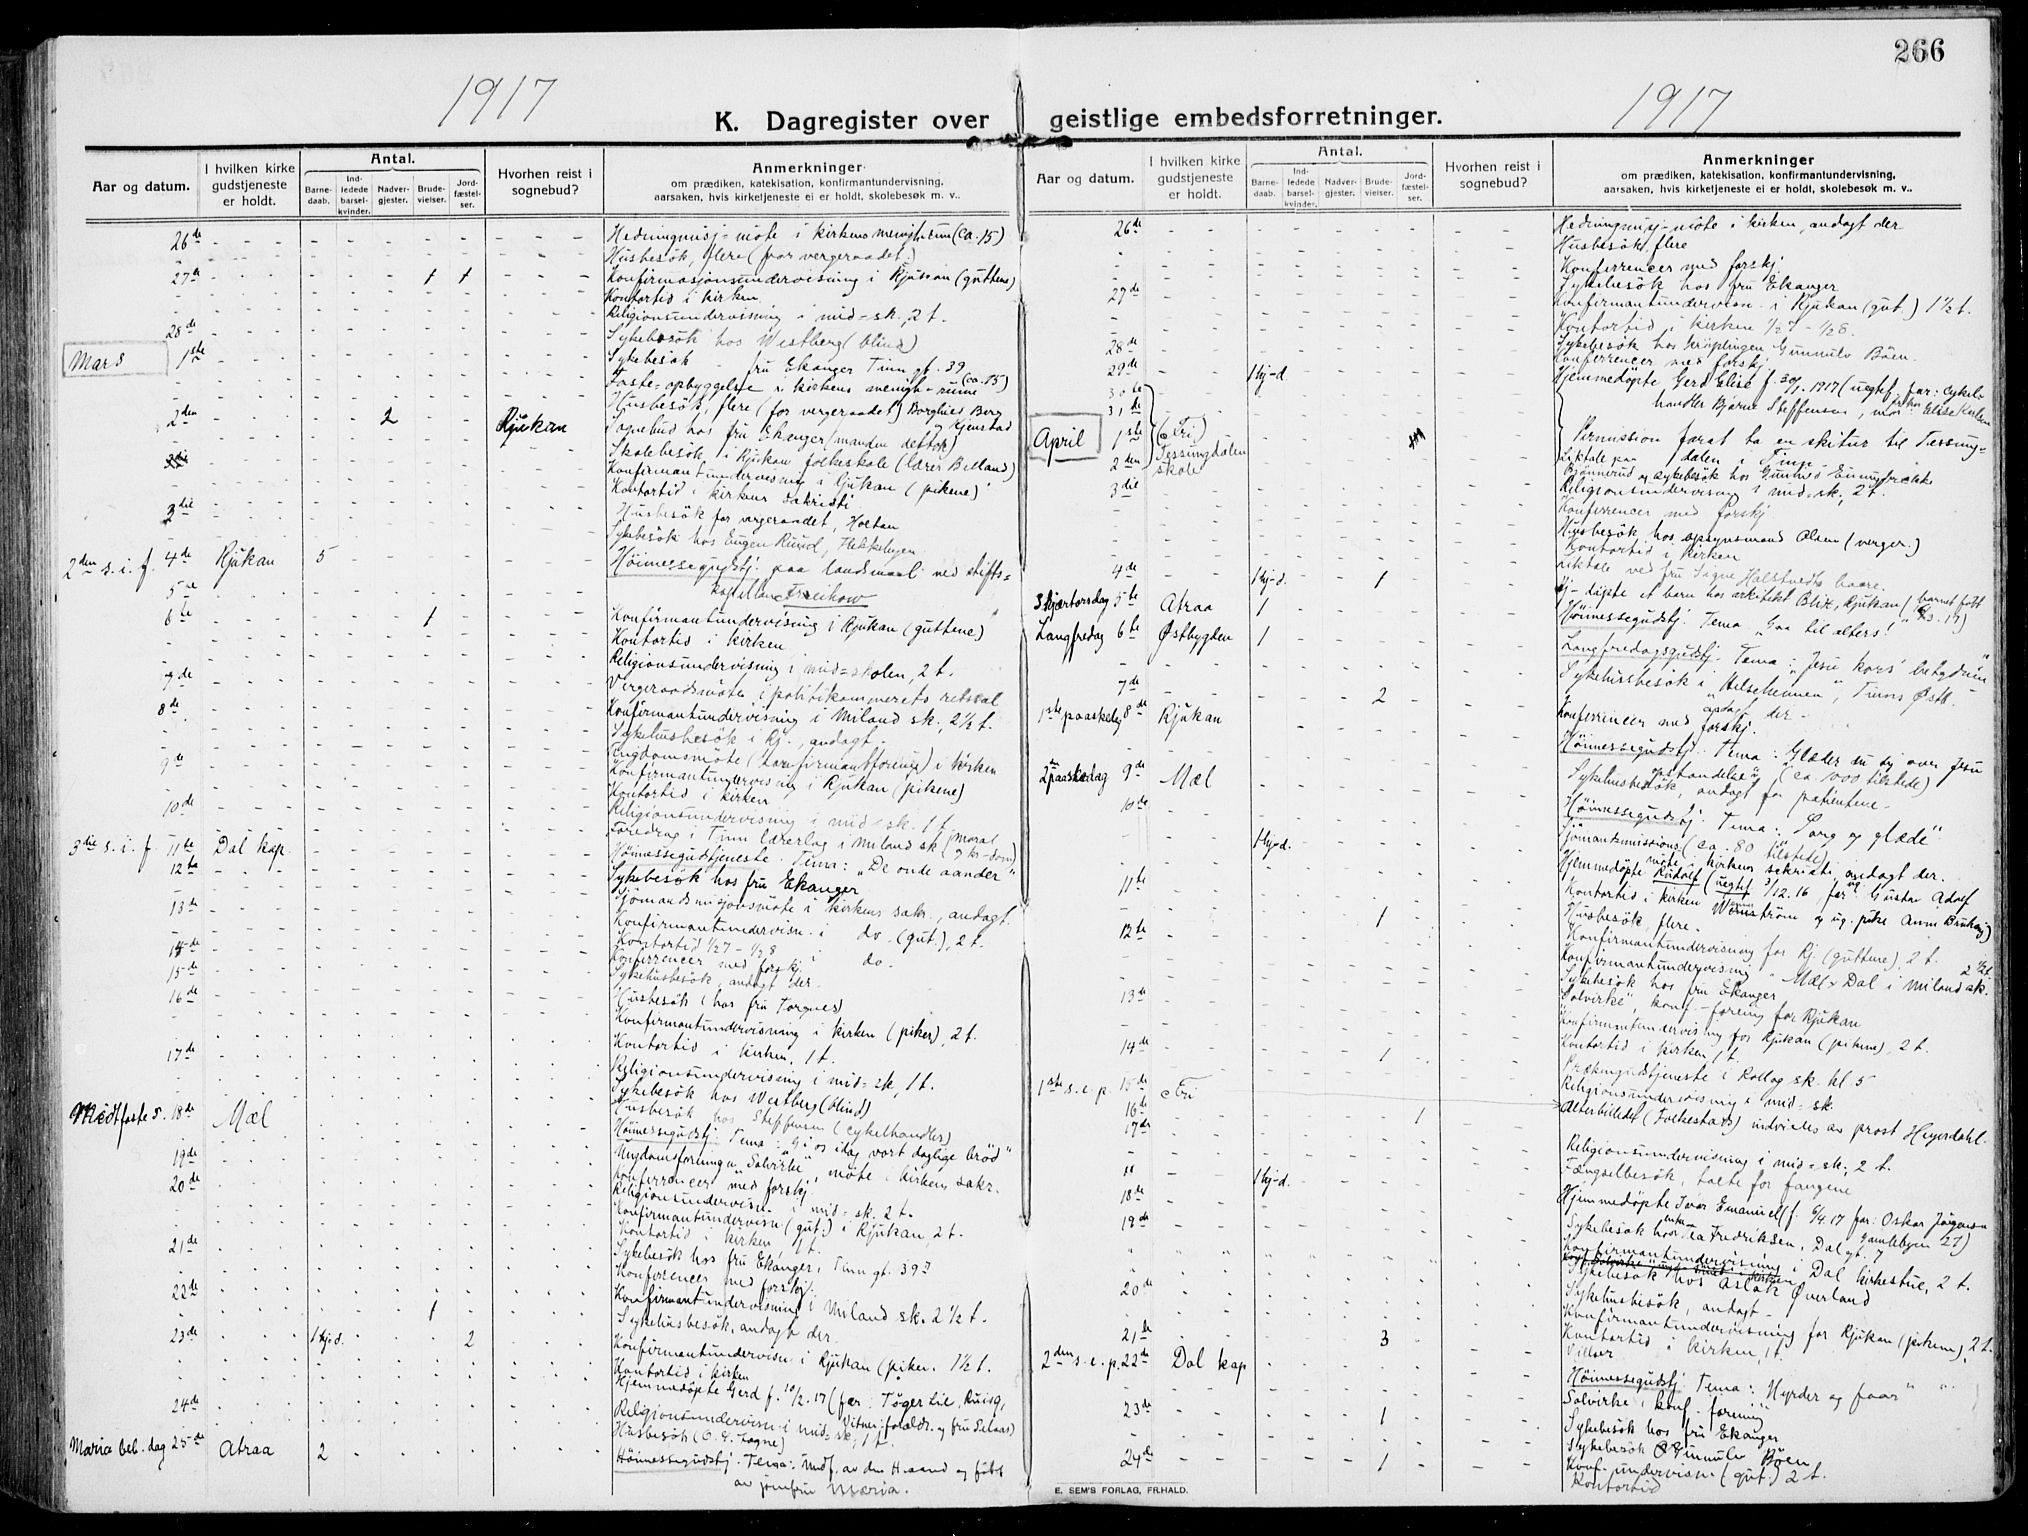 266
1917
1917
K. Dagregister over geistlige embedsforretninger.
Aar og datum.
I hvilken kirke gudstjeneste er holdt.
Antal.
Barne-daab.
Ind-ledede barsel-kvinder.
Nadver-gjester.
Brude-vielser.
Jord-fæstel-ser.
Hvorhen reist i sognebud?
Anmerkninger
om prædiken, katekisation, konfirmantundervisning,
aarsaken, hvis kirketjeneste ei er holdt, skolebesøk m. v..
26de
Husbesök, flere (for vergeraadet)
27de 1 1 Konfirmasjonsundervisning i Rjukan (guttene)
Kontortid i kirken
Religionsundervisning i mid=sk. 2 t.
28de Sykebesök hos Westberg (blind)
Mars 1ste Sykebesök - fru Ekanger Tinn gt. 39
Faste-opbyggelse i kirkens menigh-rum (ca. 15)
Husbesök, flere (for vergeraadet) Borghild Berg
2den 2 Rjukan Sognebud hos fru Ekanger (manden dertok)
Skolebesök i Rjukan folkeskole (lærer Billand)
Konfirmantundervisning i Rjukan (pikene)
Kontortid i kirkens sakristi
3die Husbesök for vergeraadet, Hoetan
Sykebesök hos Eugen Ruud,
2den s. i. f. 4de Rjukan 5 Höimessegudstj. paa landsmaal ved stifts=
kapellan Freihow
5te
6te 1 Konfirmantundervisning i Rjukan (guttene)
Kontortid i kirken
Religionsundervisning i mid=skolen, 2 t.
7de Vergeraadsmöte i politikammerets retssal
8de Konfirmantundervisning i Miland sk. 2½ t.
Sykehusbesök i Rj., andagt.
9de Ungdomsmöte (konfirmantforening) i kirken
Konfirmantundervisning i Rjukan (pikene)
Kontortid i kirken
10de Religionsundervisning i mid=sk. 1 t.
Foredrag i Tinn lærerlag i Miland sk.
3die s. i. f. 11te Dal kap. Höimessegudstjeneste. Tema: „De onde aander"
12te Sykebesök hos fru Ekanger
13de Sjömandsmisjonsmöte i kirkens sakr., andagt.
Konfirmantundervisn. i do. (gut.), 2 t.
14de Kontortid ½7 - ½8 i do.
Konferencer med forskj.
15de Sykehusbesök, andagt der.
16de Husbesök (hos fru Torgnes)
Konfirmantundervisning i kirken (piker), 2 t.
Kontortid i kirken, 1 t.
17de Religionsundervisning i mid=sk, 1 t.
Sykebesök hos Westberg (blind)
Husbesök hos Steffensen (cykelhandler)
Midtfaste s. 18de Mæl Höimessegudstj. Tema: „Gi os idag vort daglige bröd"
19de Ungdomsforeningen „Solvirke", möte i kirkens sakr.
20de Konferencer med forskj.
Religionsundervisn. i mid=sk. 2 t.
Konfirmantundervisn. (gut.) i Rjukan 2 t.
Kontortid i kirken 1 t.
21de Sykebesök hos fru Ekanger, Tinn gt. 39
Konferencer med forskj.
22de Konfirmantundervisning i Miland sk. 2½ t.
1 Sykehusbesök, andagt der.
23de 1 hj.d. 2 Konfirmantundervisn. i Rjukan (piker. 1½ t.
Kontortid i kirken
Hjemmedöpte Gerd f. 10/2. 17 (far:
24de Religionsundervisn. i mid=sk, 1 t.
Husbesök
Maria beb. dag 25de Atraa 2 Höimessegudstj. Tema: Undf. av den H. aand og födt
av jomfru Maria.
Aar og datum.
I hvilken kirke gudstjeneste er holdt.
Antal.
Barne-daab.
Ind-ledede barsel-kvinder.
Nadver-gjester.
Brude-vielser.
Jord-fæstel-ser.
Hvorhen reist i sognebud?
Anmerkninger
om prædiken, katekisation, konfirmantundervisning,
aarsaken, hvis kirketjeneste ei er holdt, skolebesøk m. v..
26de Hedningmisj-möte i kirken, andagt der
Husbesök, flere
Konferencer med forskj.
Sykebesök hos fru Ekanger
27de Konfirmantundervisn. i Rjukan (gut.) 1½ t.
Kontortid i kirken ½7 - ½8.
28de Sykebesök hos kröplingen Gunnulv Böen.
Konferencer med forskj.
29de 1 hj-d. Hjemmedöpte Gerd Elise f. 1917 (uegtef. far: cykel=
30te handler Bjarne Steffensen, mor
31te
April 1ste (Fri) Permission forat ta en skitur til Tessung=
2den Tessungdalen skole Liktale paa dalen i Tinn
3die Religionsundervisning i mid=sk. 2 t.
Konferencer med forskj
Husbesök hos opsynsmand Olsen (verger.)
Kontortid i kirken
4de 1 hj-d. 1 Liktale ved fru Signe Halstvedts baare.
Skjærtorsdag 5te Atraa 1 Höimessegudstj. Tema „Gaa til alters!"
Langfredag 6te Østbygden 1 Langfredagsgudstj. Tema: „Jesu kors' betydning"
Sykehusbesök i „Helseheimen", Tinns Østb.
7de 2 andagt der.
1ste paaskedag 8de Rjukan Konferencer med forskj.
Höimessegudstj. Tema: Glæder eder over Jesu
opstandelse" (ca. 1000 tilstede)
2den paaskedag 9de Mæl Sykehusbesök, andagt for patientene.
10de Höimessegudstj. Tema: „Sorg og glæde"
1 hj-d. Sjömandsmissions (ca. 80 tilstede)
möte i kirkens sakristi, andagt der.
11te Hjemmedöpte Rudolf (uegtef. 3/12.16, far: Gustav Adolf
Kontortid i kirken
1 Husbesök, flere.
12te Konfirmantundervisning for Rj. (guttene), 2 t.
Konfirmantundervisning „ Mæl & Dal i Miland sk. 2½ t.
Sykebesök hos fru Ekanger
13de „Solvirke", konf-forening for Rjukan
Konfirmantundervisning for Rjukan (pikene), 2 t.
14de 1 Kontortid i kirken 1 t.
Prækengudstjeneste i Rollag sk. kl 5
1ste s. e. p. 15de Fri Religionsundervisning i mid=sk.
16de 1 Alterbilledet (Folkestads) indvies av prost Heyerdahl.
17de Religionsundervisning i mid=sk, 2 t.
" 1 hj-d. Fængselbesök, talte for fangene
18de Hjemmedöpte Ivar Emanuel f. 6/4.17 far: Oskar Jörgensen
19de Sykebesök hos enke Fredriksen, Dal gt. 7 Gamlebyen 21)
Konfirmantundervisning i Dal kirkestue, 2 t.
20de Sykebesök hos Aslak Øverland
Sykehusbesök, andagt.
Konfirmantundervisning for Rjukan (pikene), 2 t.
21de 3 Kontortid i kirken, 1 t.
Vielser
2den s. e. p. 22de Dal kap Höimessegudstj. Tema: „Hyrder og faar"
Solvirke", konf.-forening
23de 1 Sykebesök hos fru Ekanger
Sykebesök Gunnulv Böen
24de 1 Konf.-undervisn. (gut.) 2 t.
Kontortid
E. SEM'S FORLAG, FR.HALD.